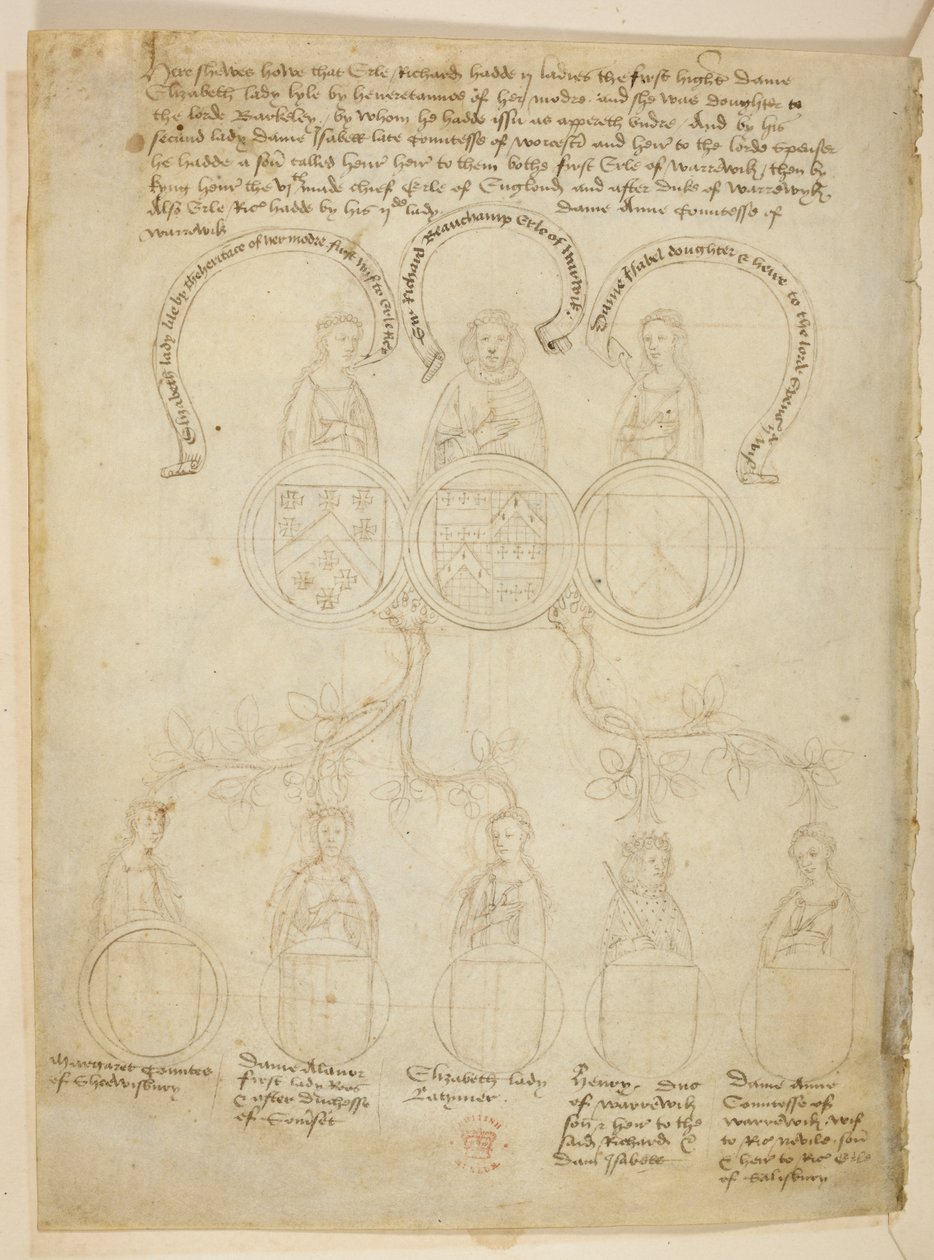 Here shewes howe that Erle Richard hadde ij ladies the first hight Dame
Elizabeth lady lyle by hir modre. and she was doughter to
the lorde Barkeley. by whom he hadde issu as appereth undre. And by his
secund lady dame Isabell late Countesse of worcestr and heir to the lorde Spenser
he hadde a son called henr heir to them bothe first Erle of warrewik, then by
kyng henr the vjth made chief Erle of Englond and after duke of warrewyk
Also Erle Ric hadde by his ijde lady Dame Anne Countesse of
warrewik
Elizabeth lady lile by the heritace of her modre first wyf to Erle Ric
Sir Richard Beauchamp Erle of Warrwik
Dame Isabel doughter & heire to the lord Spenser ij wyf
Margaret Countes
of Shrewisbury
Dame Alianor
first lady Roos
& after Duchesse
of Somset
Elizabeth lady
Latymer.
Henry. Duc
of warrewik
son & heir to the
said Richard &
Dam Isabell
Dame Anne
Comtesse of
warrewik. wif
to Ric Nevile. son
& heir to Ric Erle
of Salisbury
BRITISH
MUSEUM